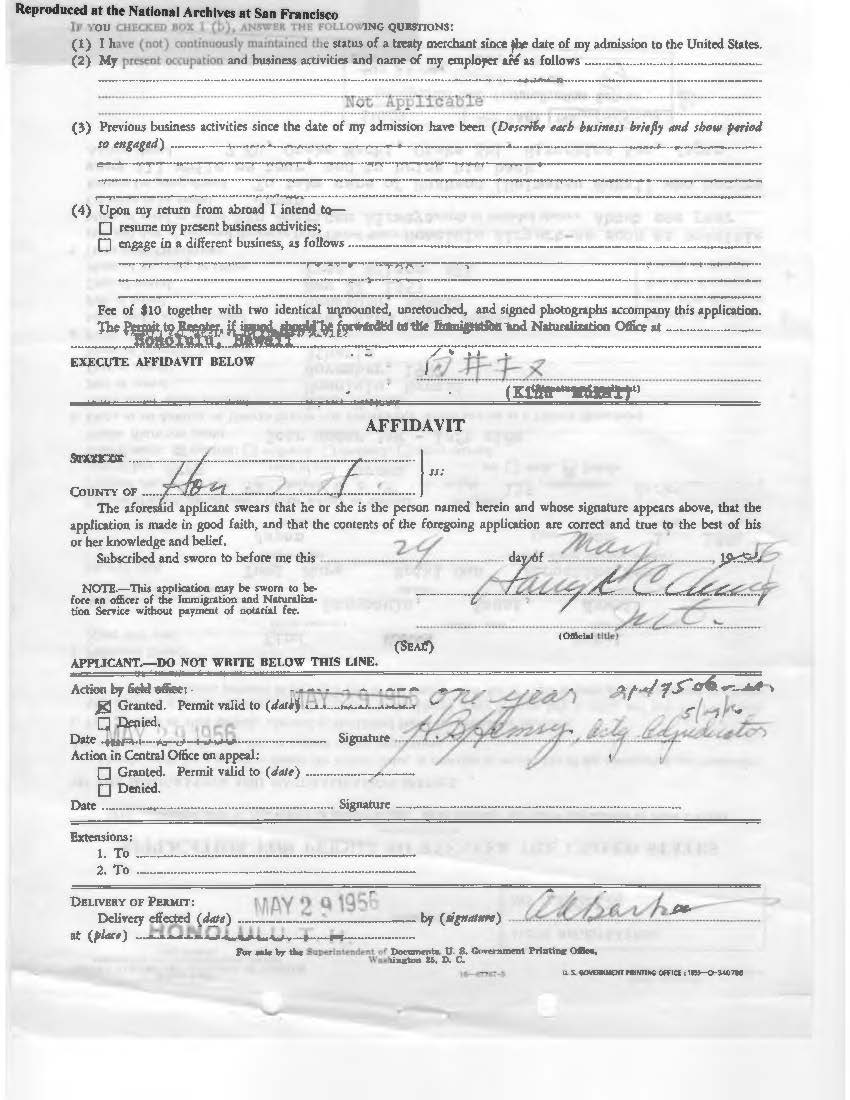 Reproduced at the National Archives at San Francisco
IF YOU CHECKED BOX 1 (b), ANSWER THE FOLLOWING QUESTIONS:
(1) I have (not) continuously maintained the status of a treaty merchant since the date of my admission to the United States.
(2) My present occupation and business activities and name of my employer are as follows
Not Applicable
(3) Previous business activities since the date of my admission have been (Describe each business briefly and show period
so engaged)
(4) Upon my return from abroad I intend to—
resume my present business activities;
engage in a different business, as follows
Fee of $10 together with two identical unmounted, unretouched, and signed photographs accompany this application.
The Permit to Reenter, if issued, should be forwarded to the Immigration and Naturalization Office at
Honolulu, Hawaii
EXECUTE AFFIDAVIT BELOW
向井キヌ
(Kinu Mukai)
AFFIDAVIT
ss:
COUNTY OF Hon
The aforesaid applicant swears that he or she is the person named herein and whose signature appears above, that the
application is made in good faith, and that the contents of the foregoing application are correct and true to the best of his
or her knowledge and belief.
Subscribed and sworn to before me this 29 day of May, 1956
NOTE.—This application may be sworn to be-
fore an officer of the Immigration and Naturaliza-
tion Service without payment of notarial fee.
(Official title)
(SEAL)
APPLICANT.—DO NOT WRITE BELOW THIS LINE.
Action by field office:
Granted. Permit valid to (date) MAY 29 1956 one year
Denied.
Date MAY 29 1956 Signature Actg Adjudicator
Action in Central Office on appeal:
Granted. Permit valid to (date)
Denied.
Date Signature
Extensions:
1. To
2. To
DELIVERY OF PERMIT:
Delivery effected (date) MAY 29 1956 by (signature)
at (place) HONOLULU, T. H.
For sale by the Superintendent of Documents, U. S. Government Printing Office,
Washington 25, D. C.
U. S. GOVERNMENT PRINTING OFFICE